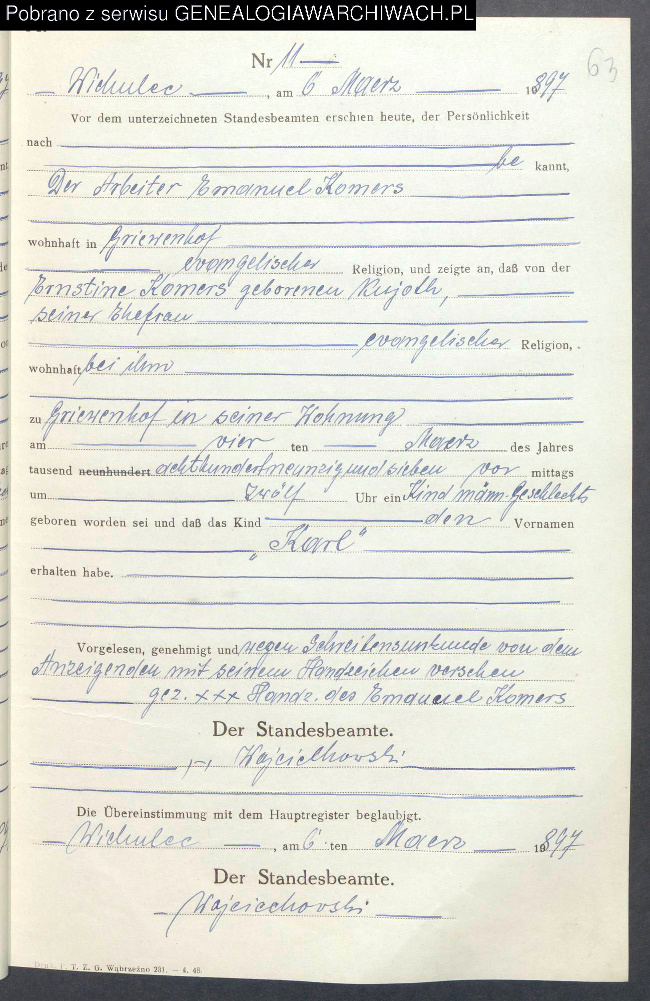 Pobrano z serwisu GENEALOGIAWARCHIWACH.PL
63
Nr 11
Wichulec, am 6 Maerz 1897
Vor dem unterzeichneten Standesbeamten erschien heute, der Persönlichkeit
nach
be kannt,
Der Arbeiter Emanuel Komers
wohnhaft in Griewenhof
evangelischer Religion, und zeigte an, daß von der
Ernstine Komers geborenen Rujoth,
seiner Ehefrau
evangelischer Religion,
wohnhaft bei ihm
zu Griewenhof in seiner Wohnung
am vier ten Maerz des Jahres
tausend neunhundert achthundertneunzigundsieben vor mittags
um zwölf Uhr ein Kind männ. Geschlechts
geboren worden sei und daß das Kind den Vornamen
"Karl"
erhalten habe.
Vorgelesen, genehmigt und wegen Schreibensunkunde von dem
Anzeigenden mit seinem Handzeichen versehen
gez. xxx Handz. des Emanuel Komers
Der Standesbeamte.
Wojciechowski
Die Übereinstimmung mit dem Hauptregister beglaubigt.
Wichulec, am 6 ten Maerz 1897
Der Standesbeamte.
Wojciechowski
T. Z. G. Wąbrzeźno 231. — 4. 48.